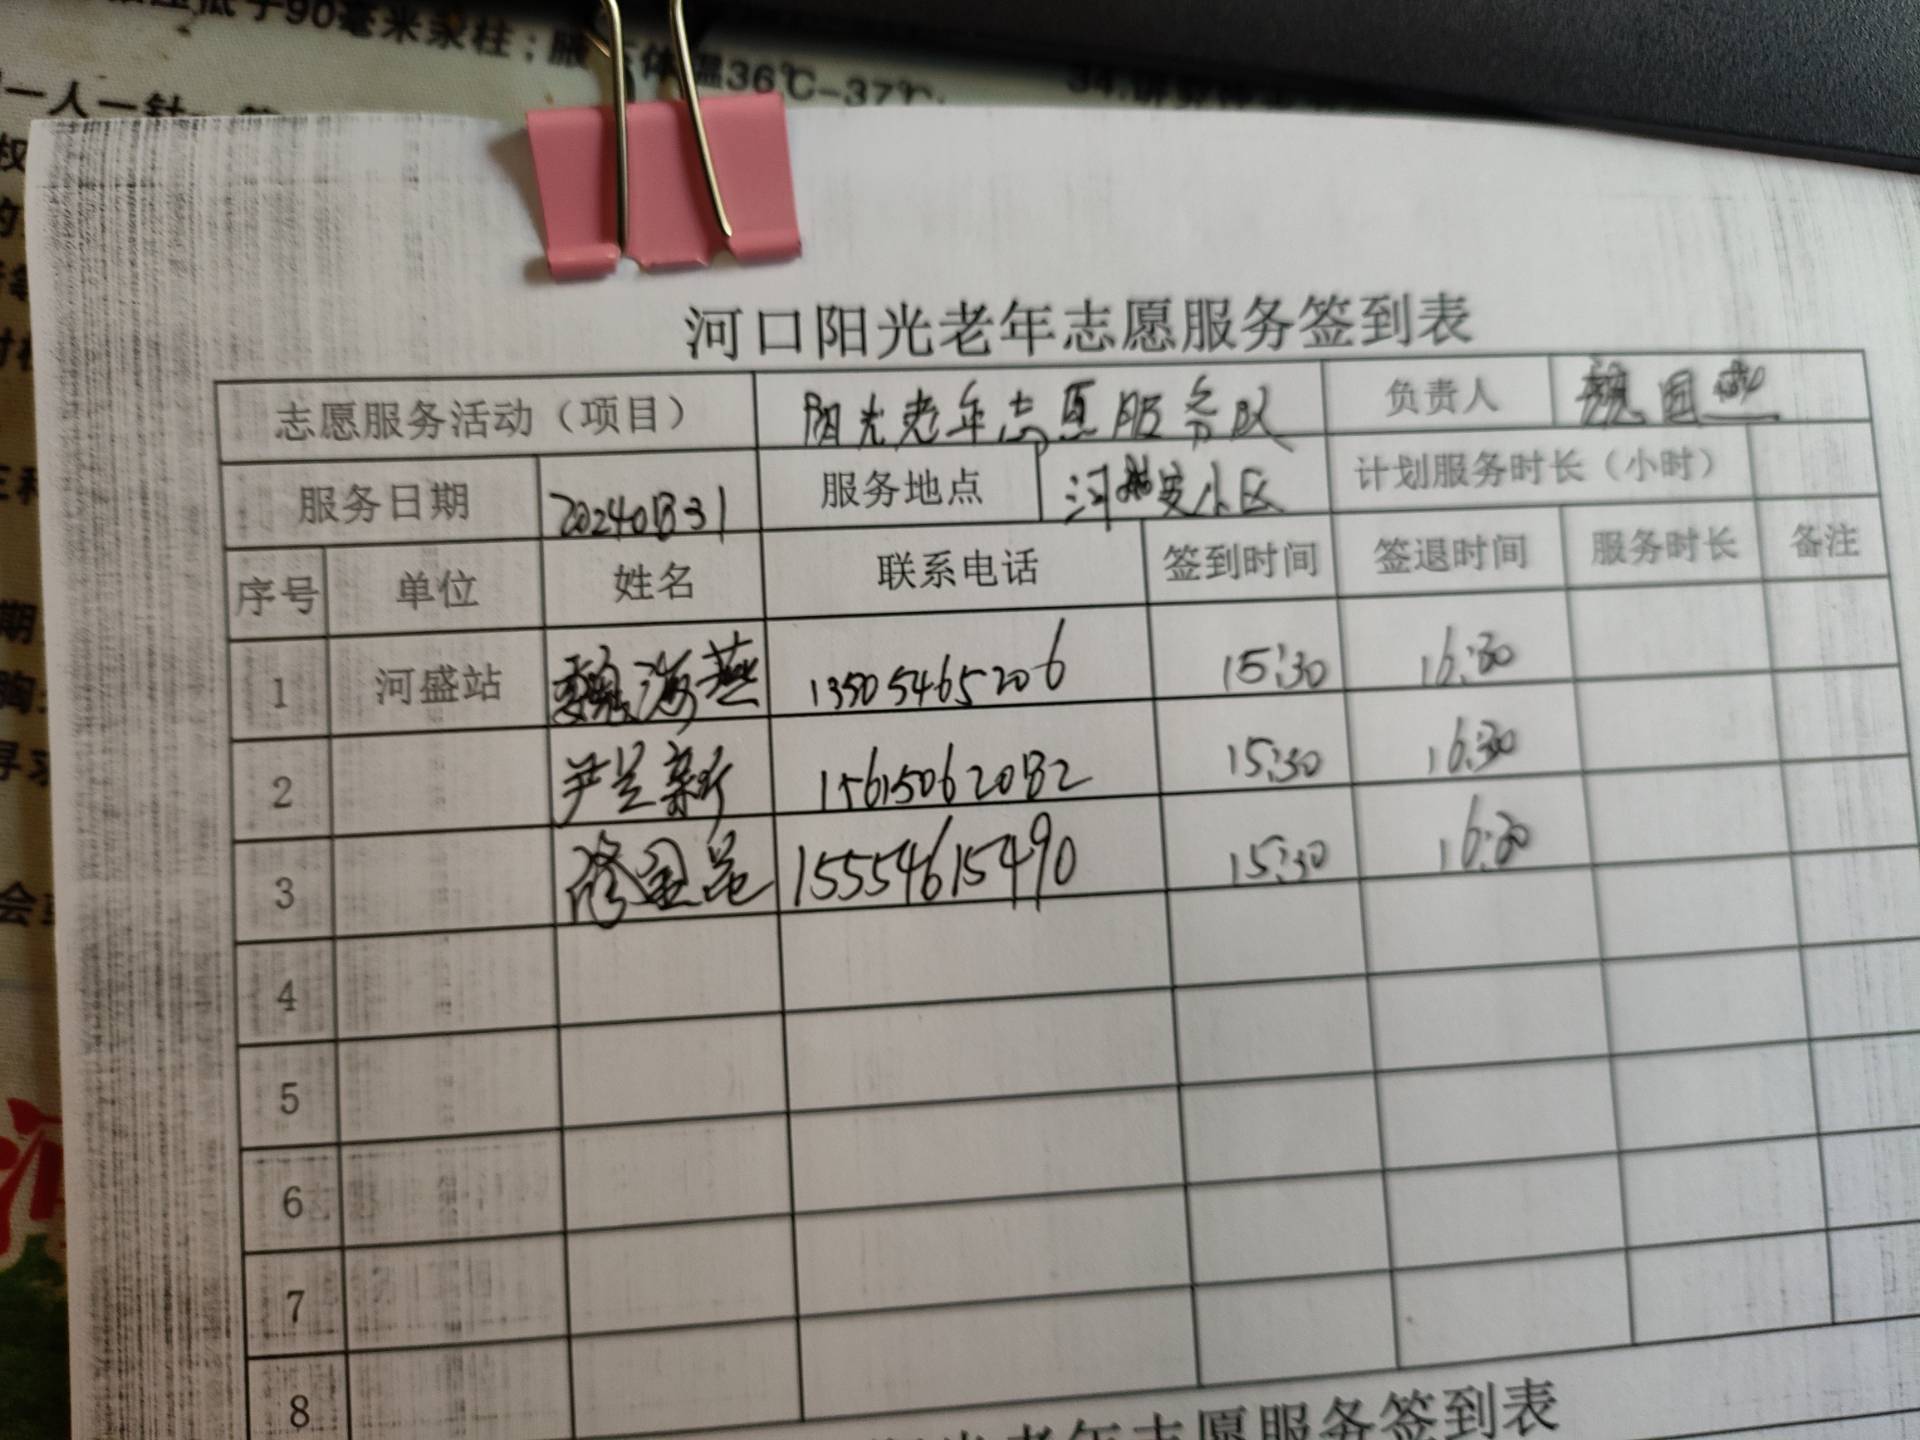 90毫米汞柱；腋
温36℃-37℃
一人一针
河口阳光老年志愿服务签到表
志愿服务活动（项目） 阳光老年志愿服务队 负责人
服务日期 服务地点 小区 计划服务时长（小时）
序号 单位 姓名 联系电话 签到时间 签退时间 服务时长 备注
1 河盛站 魏海燕 13505465206 15:30 16:30
2 尹兰新 15615062082 15:30 16:30
3 15554615490 15:30 16:30
4
5
6
7
8
老年志愿服务签到表